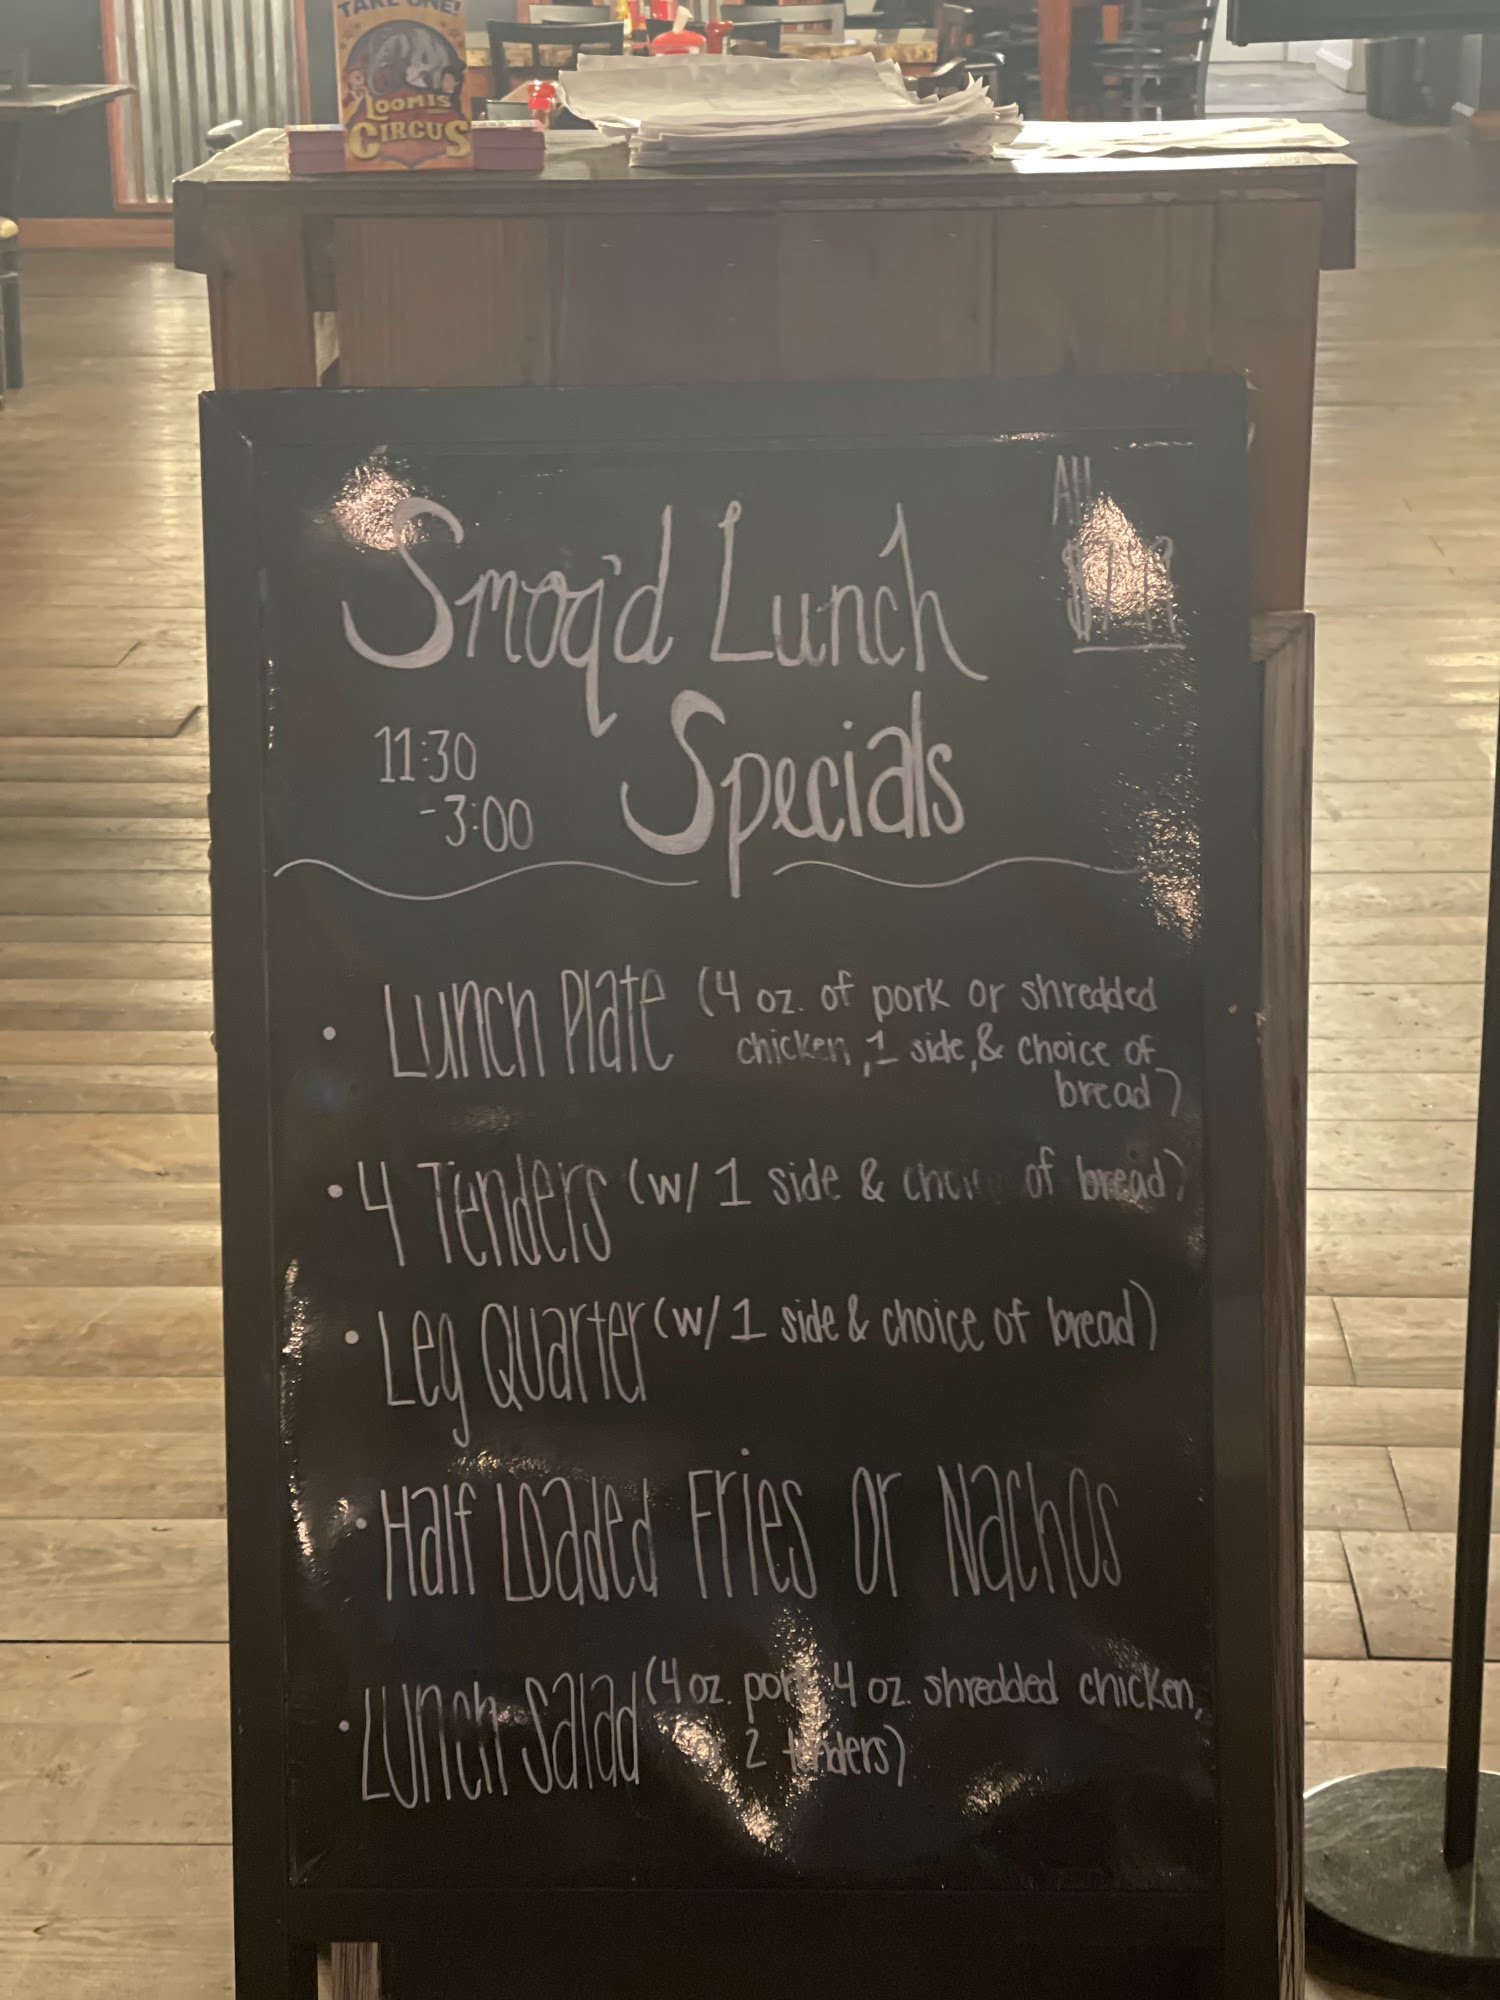 TAKE ONE!
LOOMIS
CIRCUS
All
Smoq'd Lunch
Specials
11:30
-3:00
• Lunch Plate (4 oz. of pork or shredded
chicken, 1 side, & choice of
bread)
• 4 Tenders (w/ 1 side & choice of bread)
• Leg Quarter (w/ 1 side & choice of bread)
• Half Loaded Fries or Nachos
• Lunch Salad (4 oz. pork, 4 oz. shredded chicken,
2 tenders)